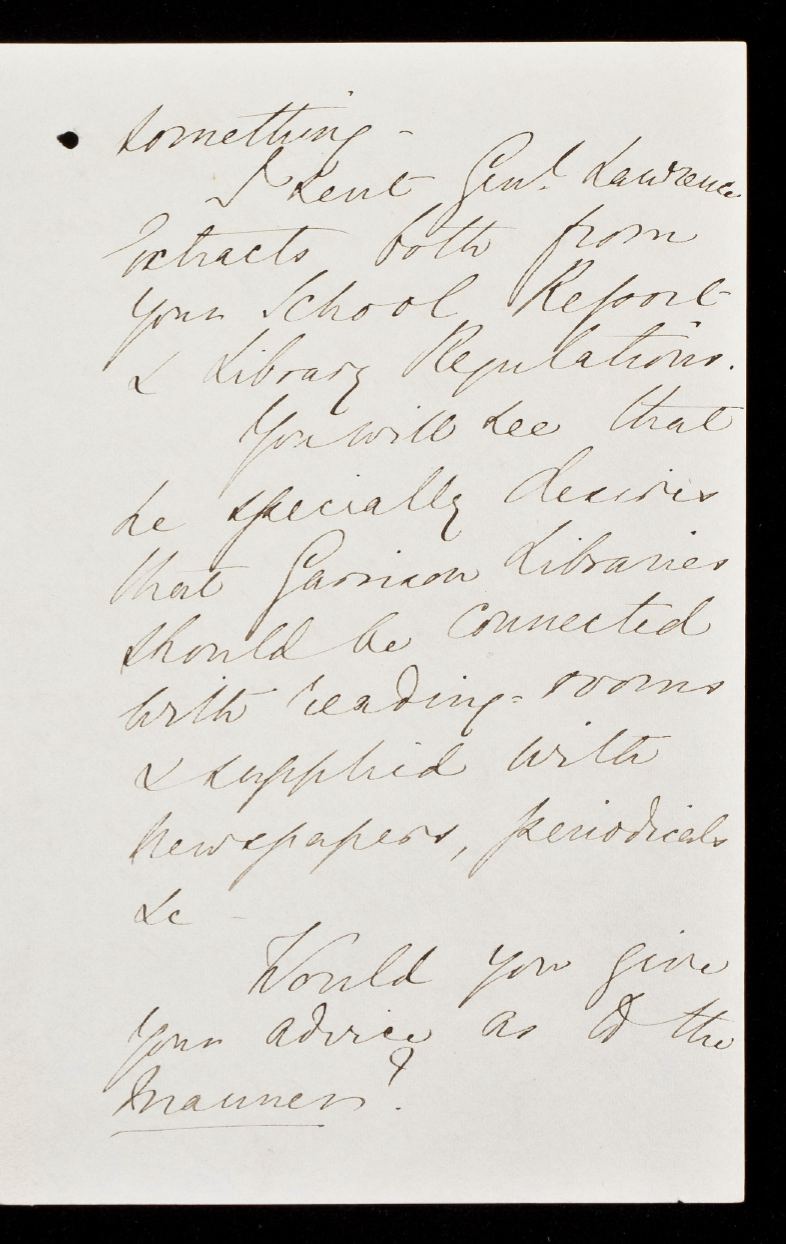 something -
I sent Genl. Lawrence
extracts both from
your School Report
& Library Regulations.
You will see that
he specially desires
that Garrison Libraries
should be connected
with reading-rooms
& supplied with
newspapers, periodicals
&c -
Would you give
your advice as to the
manner?